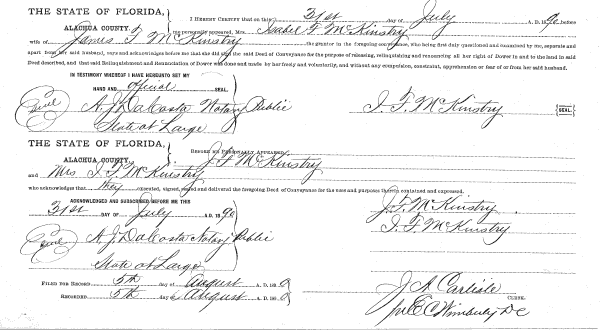 THE STATE OF FLORIDA,
ALACHUA COUNTY.
I HEREBY CERTIFY that on this 31st day of July A. D. 1890 before
me personally appeared, Mrs. Isabel F McKinstry
wife of James F McKinstry the grantor in the foregoing conveyance, who being first duly questioned and examined by me, separate and
apart from her said husband, very and acknowledges before me that she did the said Deed of Conveyance for the purpose of releasing, relinquishing and renouncing all her right of Dower in and to the land in said
Deed described, and that said Relinquishment and Renunciation of Dower was done and made by her freely and voluntarily, and without any compulsion, constraint, apprehension or fear of or from her said husband.
IN TESTIMONY WHEREOF I HAVE HEREUNTO SET MY
HAND AND official SEAL.
Seal A. J. DaCosta Notary Public I. F. McKinstry {SEAL.}
State at Large
THE STATE OF FLORIDA,
ALACHUA COUNTY.
BEFORE ME PERSONALLY APPEARED J F McKinstry
and Mrs I. F. McKinstry
who acknowledges that they executed, signed, sealed and delivered the foregoing Deed of Conveyance for the uses and purposes therein contained and expressed.
ACKNOWLEDGED AND SUBSCRIBED BEFORE ME THIS
31st DAY OF July A. D. 1890
J. F. McKinstry
I. F. McKinstry
Seal A. J. DaCosta Notary Public
State at Large
FILED FOR RECORD 5th day of August A. D. 1890
RECORDED 5th day of August A. D. 1890
J A Carlisle
CLERK.
per E C Wimberly D C